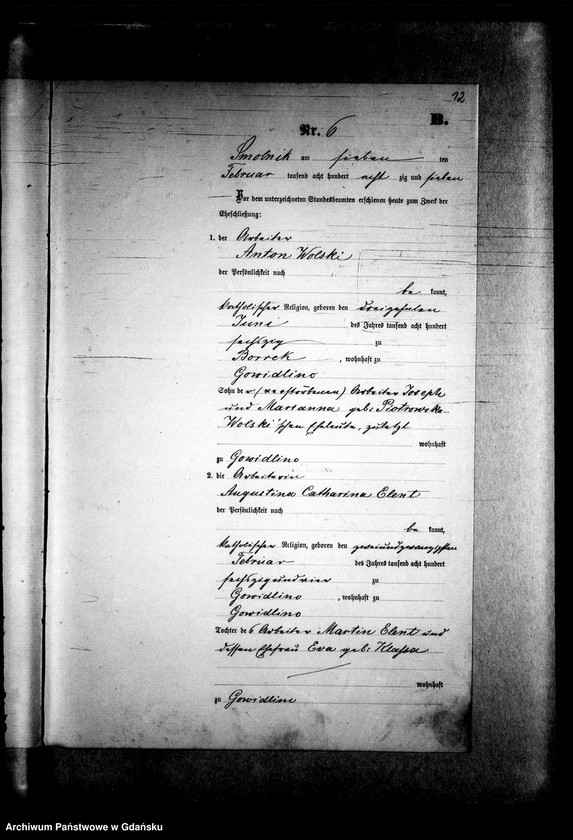 12
B.
Nr. 6
Smolnik am sieben ten
Februar tausend acht hundert acht zig und sieben
Vor dem unterzeichneten Standesbeamten erschienen heute zum Zweck der
Eheschließung:
1. der Arbeiter
Anton Wolski
der Persönlichkeit nach
be kannt,
katholischer Religion, geboren den dreizehnten
Juni des Jahres tausend acht hundert
sechszig zu
Borrek, wohnhaft zu
Gowidlino
Sohn der (verstorbenen) Arbeiter Joseph
und Marianna geb: Piotrowska-
Wolski'schen Eheleute, zuletzt
wohnhaft
zu Gowidlino
2. die Arbeiterin
Augustina Catharina Elent
der Persönlichkeit nach
be kannt,
katholischer Religion, geboren den zweiundzwanzigsten
Februar des Jahres tausend acht hundert
sechszigundvier zu
Gowidlino, wohnhaft zu
Gowidlino
Tochter des Arbeiter Martin Elent und
dessen Ehefrau Eva geb: Klassa
wohnhaft
zu Gowidlino
Archiwum Państwowe w Gdańsku